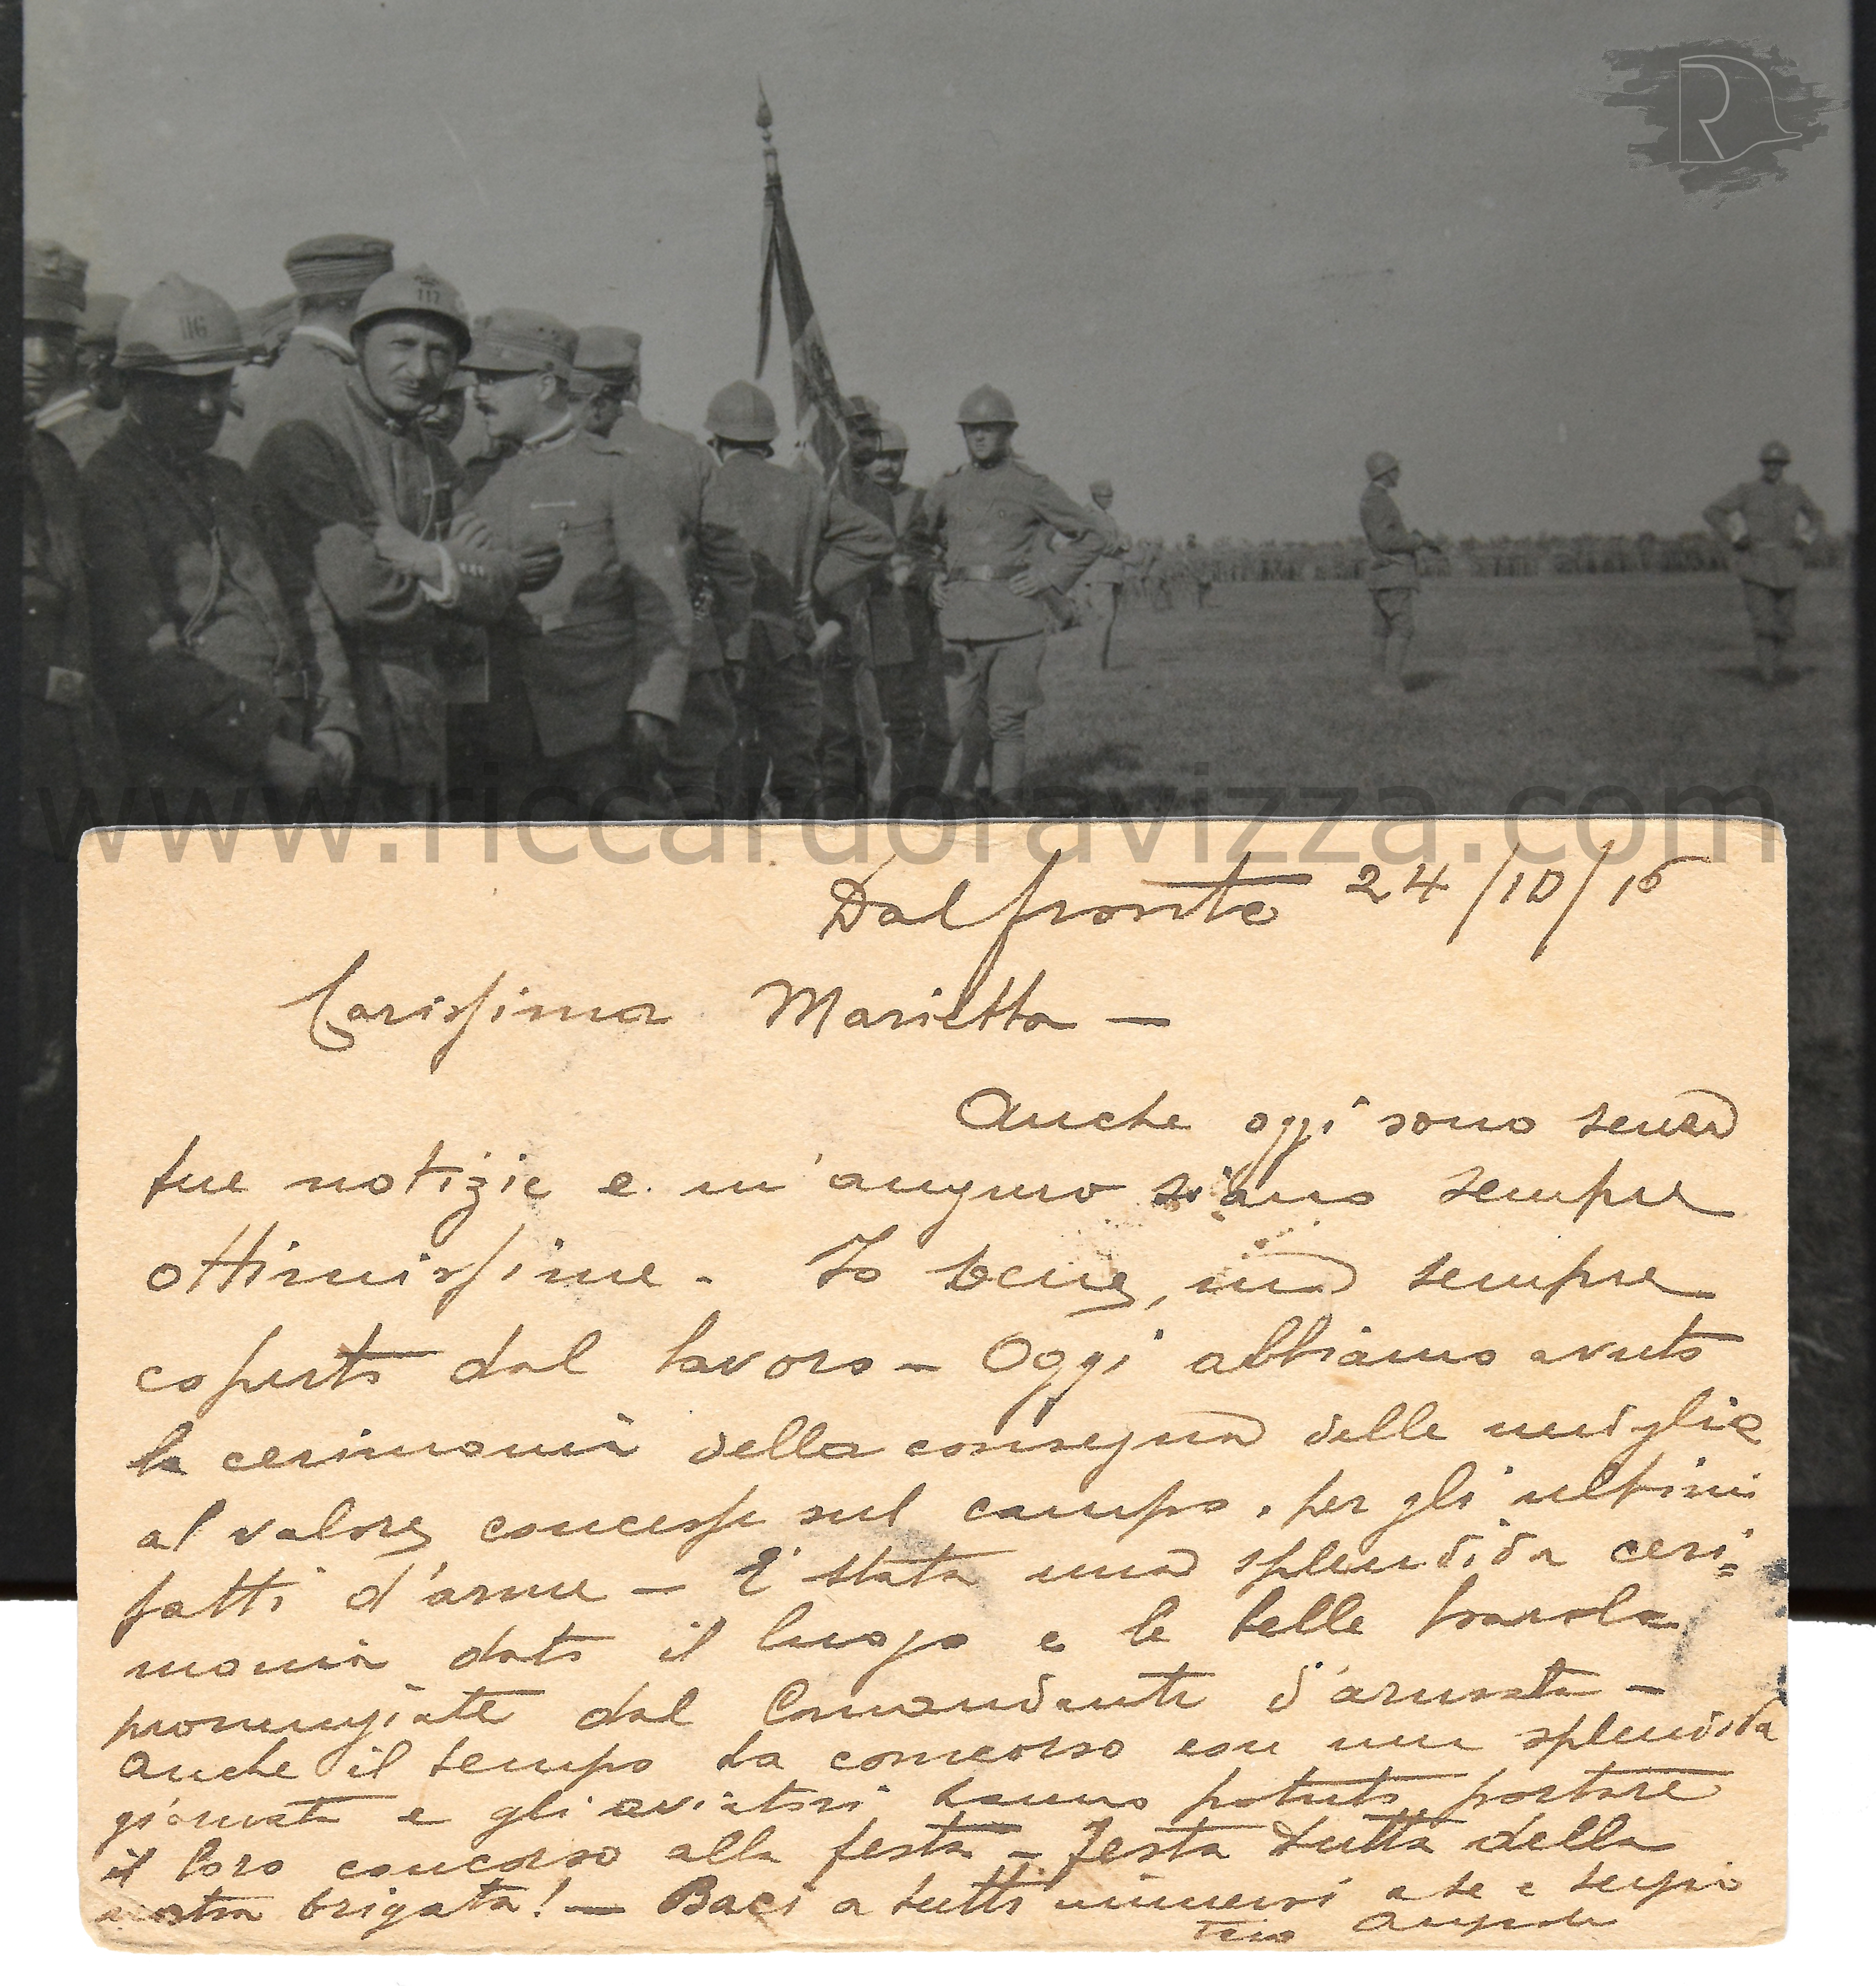 R
116
117
www.riccardoravizza.com
Dal fronte 24/10/16
Carissima Marietta —
Anche oggi sono senza
tue notizie e m'auguro siano sempre
ottimissime. Io bene, ma sempre
coperto dal lavoro — Oggi abbiamo avuto
la cerimonia della consegna delle
al valore concesse sul campo, per gli ultimi
fatti d'arme — E' stata una splendida ceri=
monia dato il luogo e le belle parole
pronunziate dal Comandante d'armata —
Anche il tempo ha concorso con una splendida
giornata e gli aviatori hanno potuto portare
il loro concorso alla festa — Festa tutta della
nostra brigata! — Baci a tutti a te e
tuo